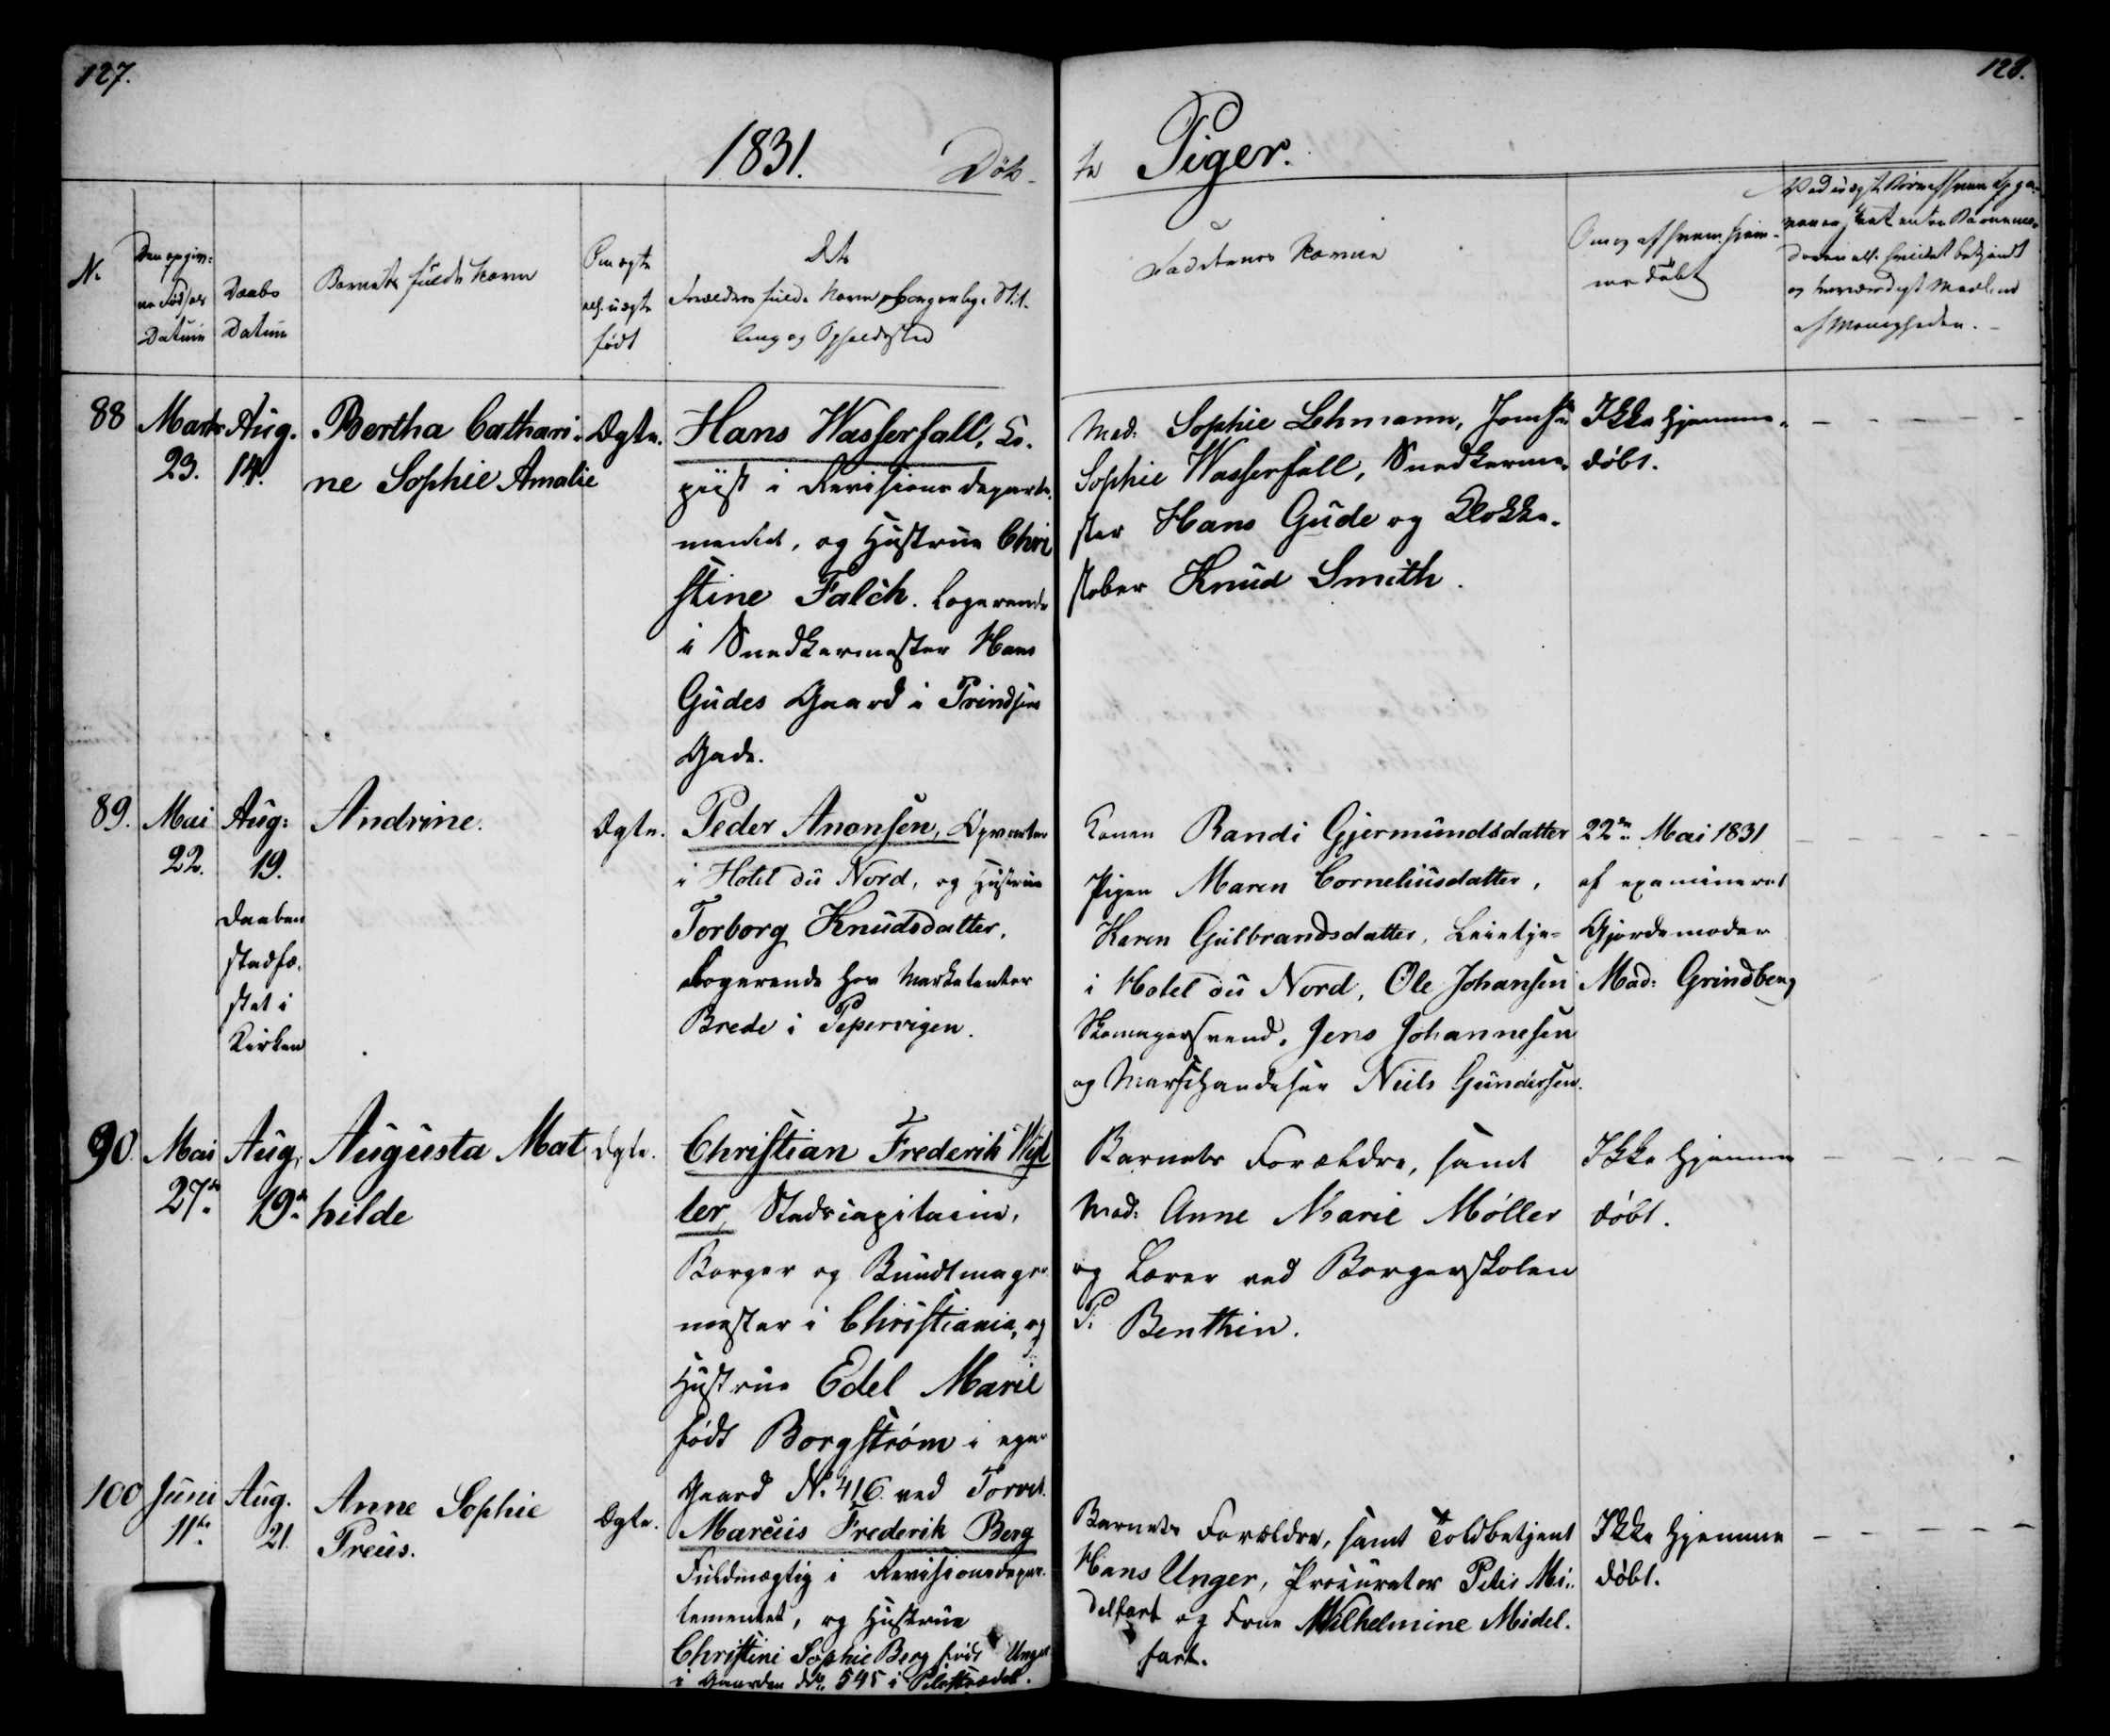 127.
128.
1831. Døb-
te Piger.
No
Den opgiv-
ne Fødsels
Datum
Daabs
Datum
Barnets fulde Navn
Om ægte
ell. uægte
født
Forældres fulde Navn, borgerlige Stil-
ling og Opholdssted
Faddernes Navne
Om og af hvem hjem-
medøbt
88
Marts
23.
Aug.
14.
Bertha Cathari-
ne Sophie Amalie
Ægte.
Hans Wasserfall, Co-
piist i Revisions Departe-
mentet, og Hustrue Chri
stine Falch. Logerende
i Snedkermester Hans
Gudes Gaard i Prindsens
Gade.
Mad: Sophie Lehmann, Jomfr
Sophie Wasserfall, Snedkerme-
ster Hans Gude og Klokke-
støber Knud Smith.
Ikke hjemme-
døbt.
89.
Mai
22.
Aug:
19.
Daaben
stadfæ-
stet i
Kirken
Andrine.
Ægte.
Peder Anansen, Opvarter
i Hotel du Nord, og Hustrue
Torborg Knudsdatter.
Logerende hos Marketenter
Brede i Pepervigen.
Konen Randi Gjermundsdatter
Pigen Maren Corneliusdatter,
Karen Gulbrandsdatter, Leietje-
i Hotel du Nord, Ole Johansen
Skomagersvend, Jens Johannesen
og Marschandiser Niels Gundersen.
22de Mai 1831
af examineret
Gjordemoder
Mad: Grindberg
90
Mai
27de
Aug.
19de
Augusta Mat
hilde
Ægte.
Christian Frederik
ler, Stadscapitaine,
Borger og Bundtmager
mester i Christiania, og
Hustrue Edel Marie
født Borgstrøm i egen
Gaard No 416 ved Torvet.
Barnets Forældre, samt
Mad: Anne Marie Møller
og Lærer ved Borgerskolen
P. Benthin.
Ikke hjemme
døbt.
100
Juni
11te
Aug.
21.
Anne Sophie
Preus.
Ægte.
Marcus Frederik Berg
Fuldmægtig i Revisionsdepar-
tementet, og Hustrue
Christine Sophie Berg født Unger
i Gaarden No. 545 i Pilestrædet.
Barnets Forældre, samt Toldbetjent
Hans Unger, Procurator Peter Mi-
delfart og Frue Wilhelmine Midel-
fart.
Ikke hjemme
døbt.